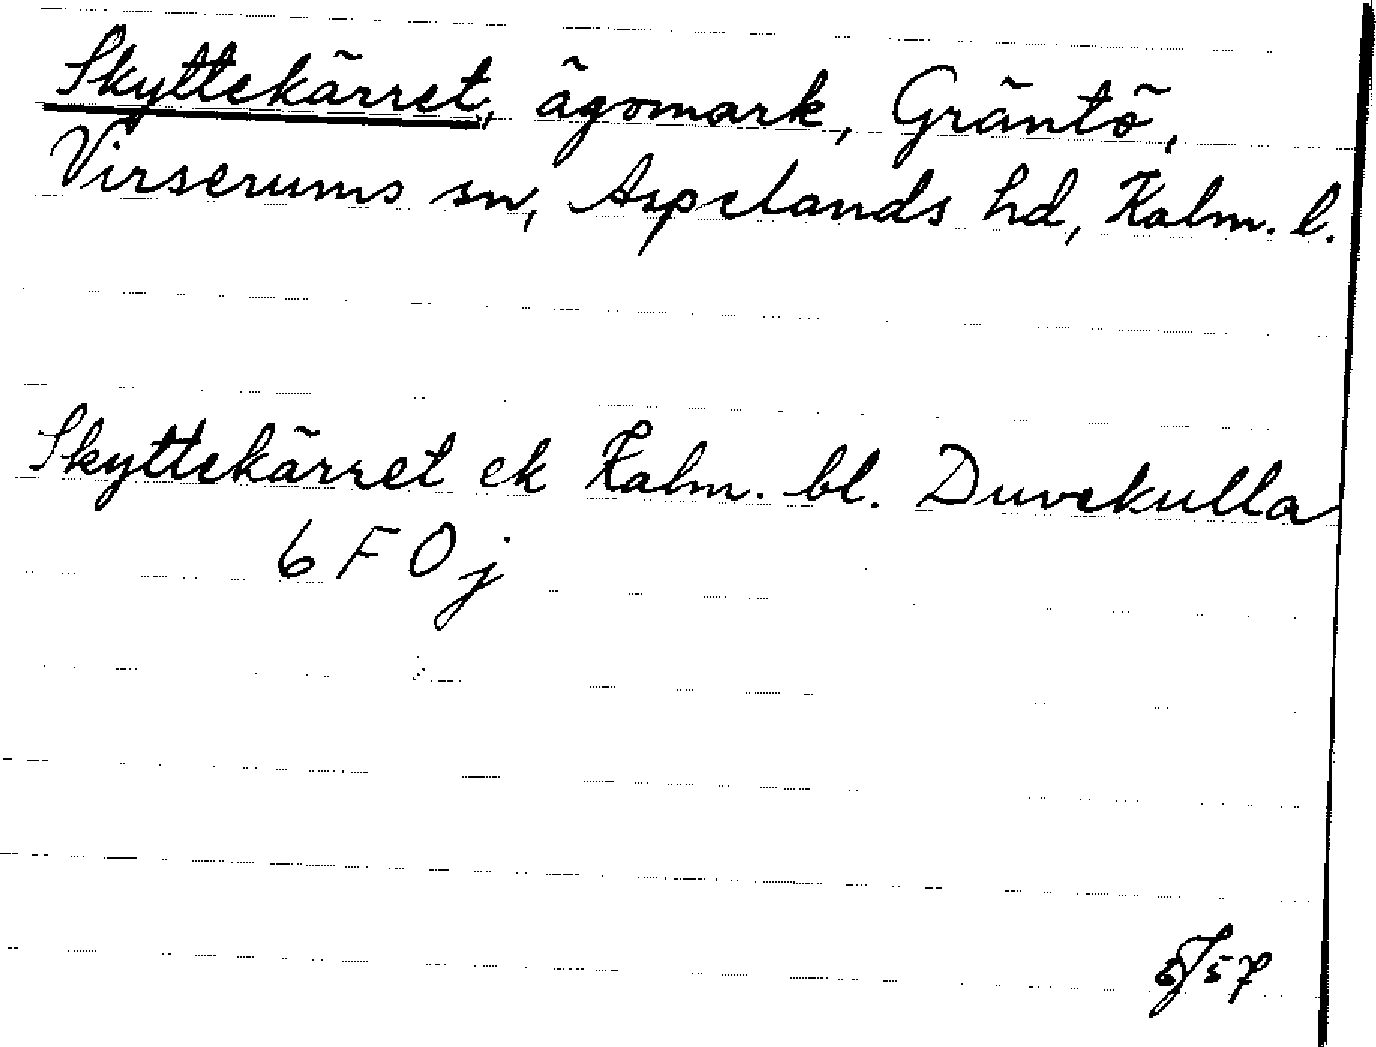 Skyttekärret, ägomark, Gräntö,
Virserums sn, Aspelands hd, Kalm. l.
Skyttekärret ek Kalm. bl. Duvekulla
6 F 0 j
57